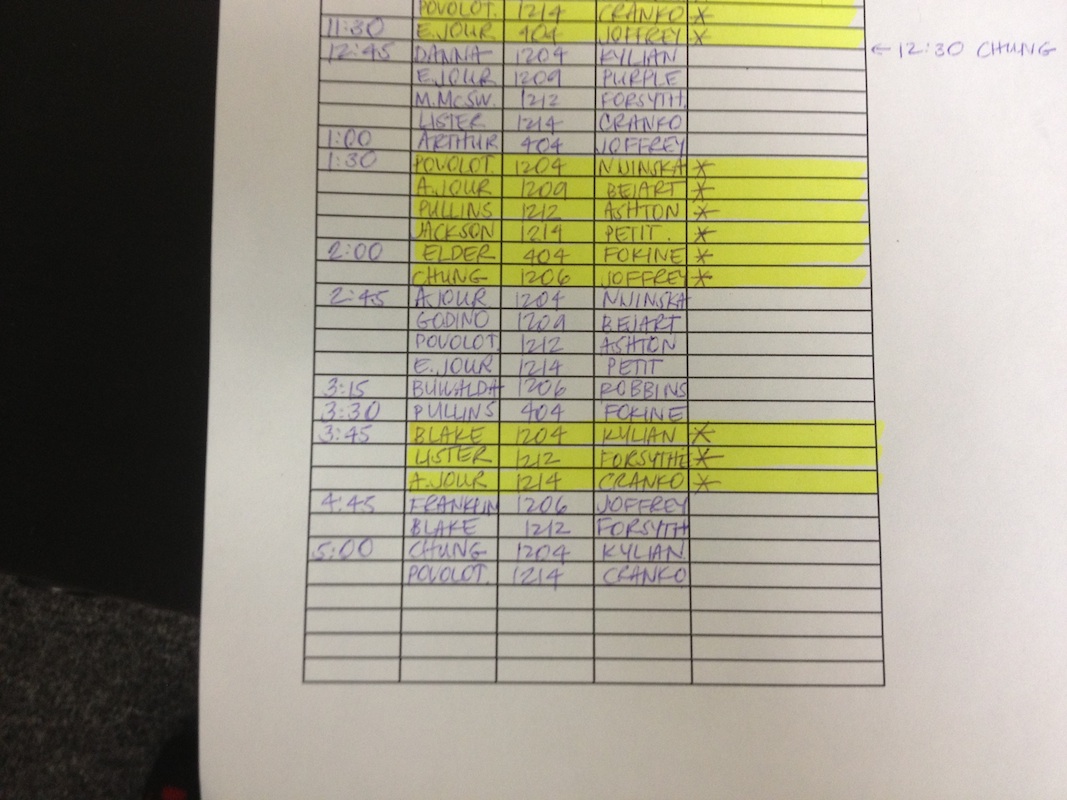 POVOLOT. 1214 CRANKO *
11:30 E.JOUR 404 JOFFREY *
12:45 DANNA 1204 KYLIAN ← 12:30 CHUNG
E.JOUR 1209
M.MCSW. 1212 FORSYTH.
LISTER 1214 CRANKO
1:00 ARTHUR 404 JOFFREY
1:30 POVOLOT 1204 NIJINSKA *
A.JOUR 1209 BEJART *
PULLINS 1212 ASHTON *
JACKSON 1214 PETIT *
2:00 ELDER 404 FOKINE *
CHUNG 1206 JOFFREY *
2:45 A.JOUR 1204 NIJINSKA
GODNO 1209 BEJART
POVOLOT 1212 ASHTON
E.JOUR 1214 PETIT
3:15 1206 ROBBINS
3:30 PULLINS 404 FOKINE
3:45 BLAKE 1204 KYLIAN *
LISTER 1212 FORSYTHE *
A.JOUR 1214 CRANKO *
4:45 FRANKLIN 1206 JOFFREY
BLAKE 1212 FORSYTH
5:00 CHUNG 1204 KYLIAN
POVOLOT. 1214 CRANKO